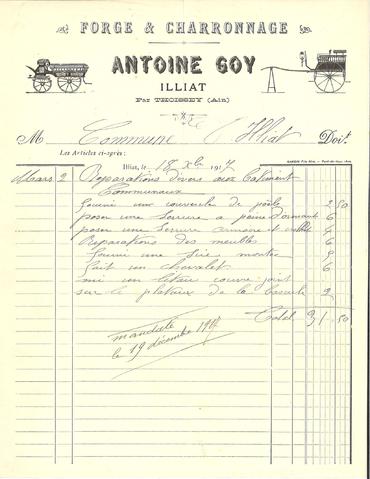 FORGE & CHARRONNAGE
ANTOINE GOY
ILLIAT
Par THOISSEY (Ain)
M Commune d'Illiat Doit
Les Articles ci-après :
Illiat, le 18 Xbre 1917
Mars 2 Reparations divers aux batiment
Communaux
fourni un couvercle de poële 2 50
poser une serrure a pêne dormant 6
poser une serrure armoire et 4
Reparations des meubles 6
fourni une
fait un chevalet 6
mi un couvre joint
sur le plateau de la bascule 2
Total 31.50
mandaté
le 19 décembre 1917